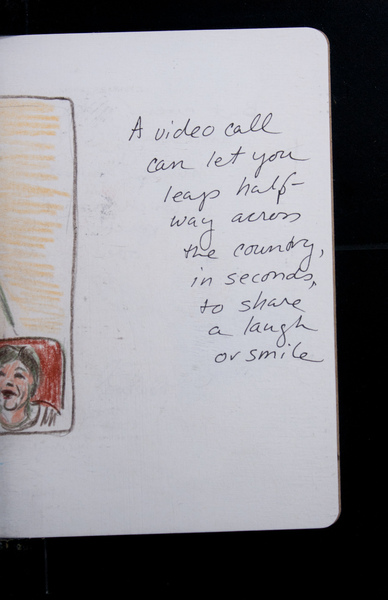 A video call
can let you
leap half-
way across
the country,
in seconds,
to share
a laugh
or smile